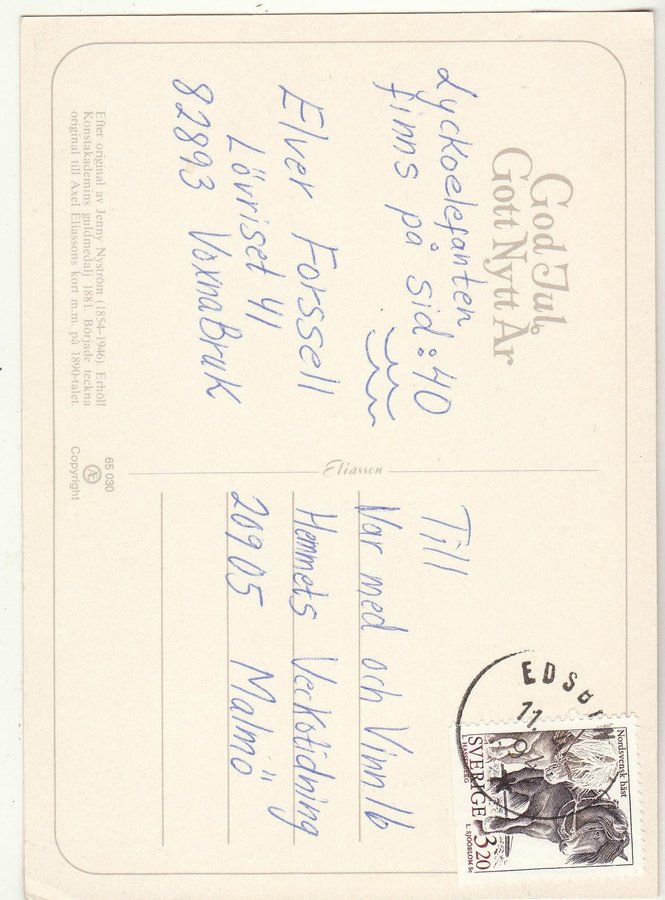 God Jul,
Gott Nytt År
Lyckoelefanten
finns på sid:40
Elver Forssell
Lövriset 41
82893 VoxnaBruk
Efter original av Jenny Nyström (1854-1946). Erhöll
Konstakademins guldmedalj 1881. Började teckna
original till Axel Eliassons kort m.m. på 1890-talet.
Eliasson
65 030
Æ
Copyright
Till
Var med och Vinn 16
Hemmets Veckotidning
20905 Malmö
11.
Nordsvensk häst
SVERIGE 320
L. SJÖÖBLOM SC